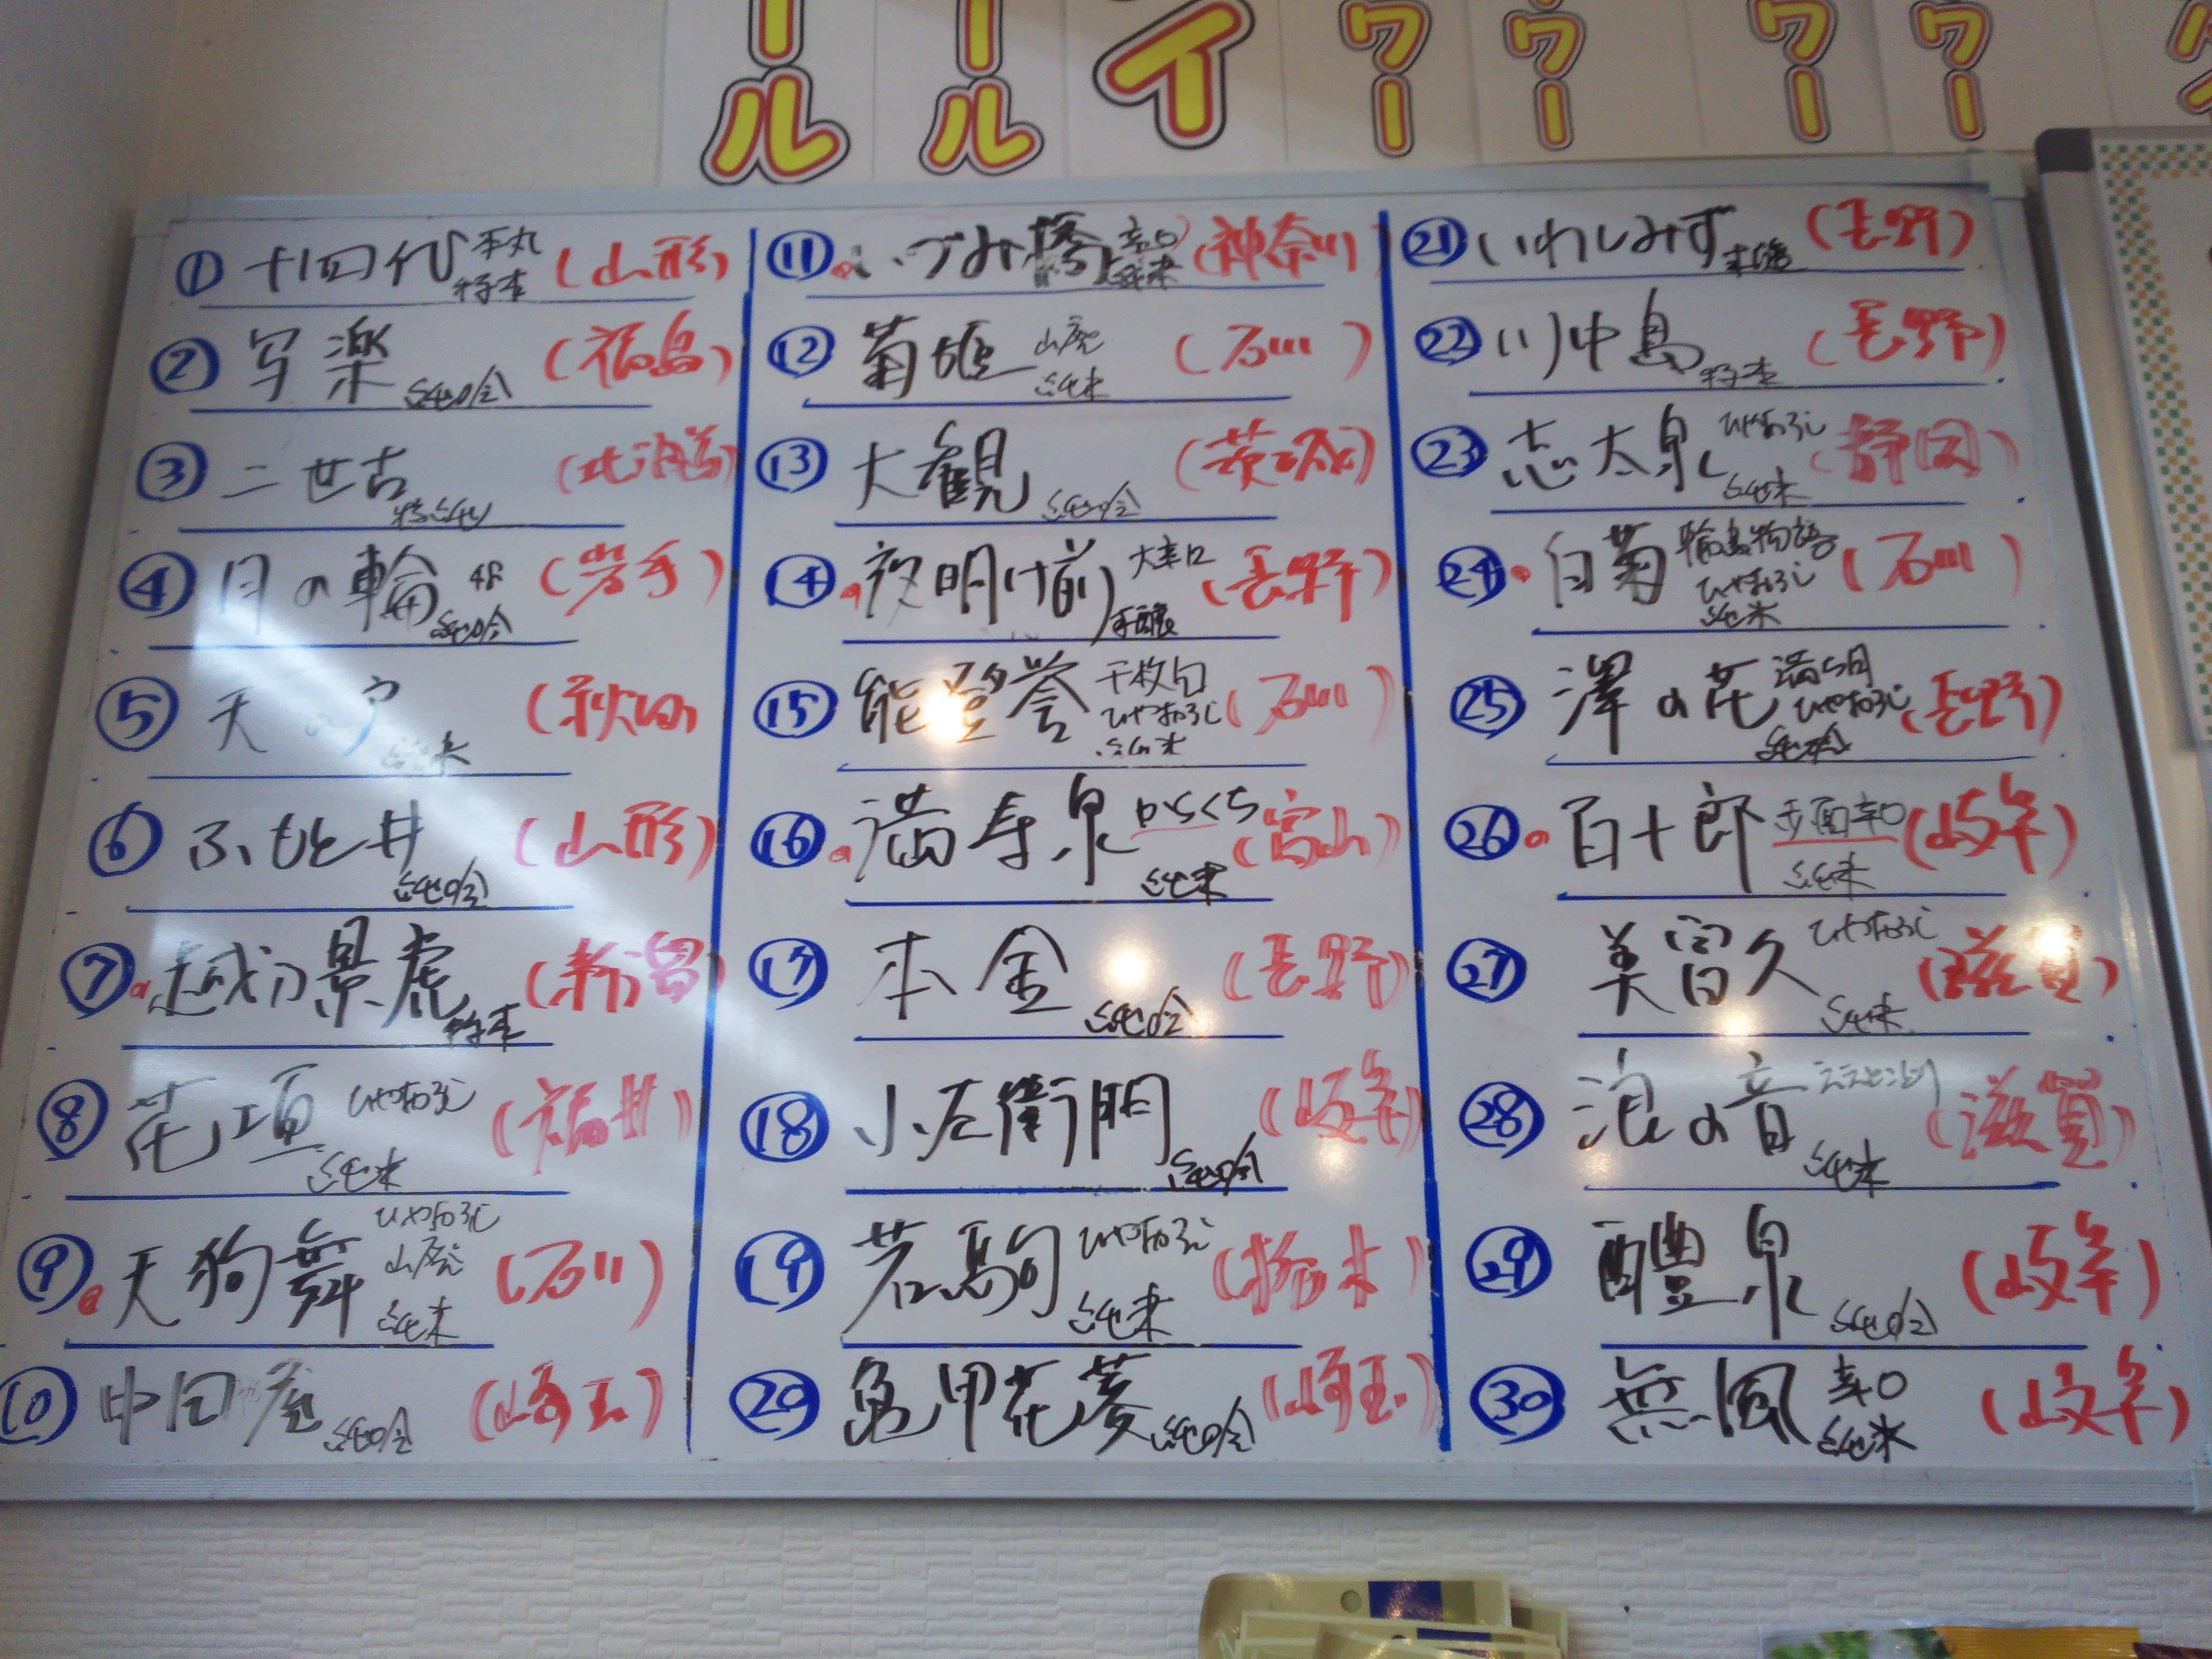 ール
ール
イ
ワー
ウー
ワー
ワー
① 十四代 本丸 特本 (山形)
② 写楽 純吟 (福島)
③ 二世古 特純 (北海道)
④ 月の輪 純吟 (岩手)
⑤ 天の戸 純米 (秋田)
⑥ ふもと井 純吟 (山形)
⑦ 越乃景虎 特本 (新潟)
⑧ 花垣 ひやおろし 純米 (福井)
⑨ 天狗舞 ひやおろし 山廃 純米 (石川)
⑩ 中田屋 純吟 (埼玉)
⑪ いづみ橋 辛口 純米 (神奈川)
⑫ 菊姫 山廃 純米 (石川)
⑬ 大観 純吟 (茨城)
⑭ 夜明け前 大辛口 本醸 (長野)
⑮ 能登誉 千枚田 ひやおろし 純米 (石川)
⑯ 満寿泉 からくち 純米 (富山)
⑰ 本金 純吟 (長野)
⑱ 小左衛門 純吟 (岐阜)
⑲ 若駒 ひやおろし 純米 (栃木)
⑳ 亀甲花菱 純吟 (埼玉)
㉑ いわしみず 本醸 (長野)
㉒ 川中島 特本 (長野)
㉓ 志太泉 ひやおろし 純米 (静岡)
㉔ 白菊 輪島物語 ひやおろし 純米 (石川)
㉕ 澤の花 ひやおろし 純吟 (長野)
㉖ 百十郎 赤面辛口 純米 (岐阜)
㉗ 美冨久 ひやおろし 純米 (滋賀)
㉘ 浪の音 ええとこどり 純米 (滋賀)
㉙ 醴泉 純吟 (岐阜)
㉚ 無風 辛口 純米 (岐阜)